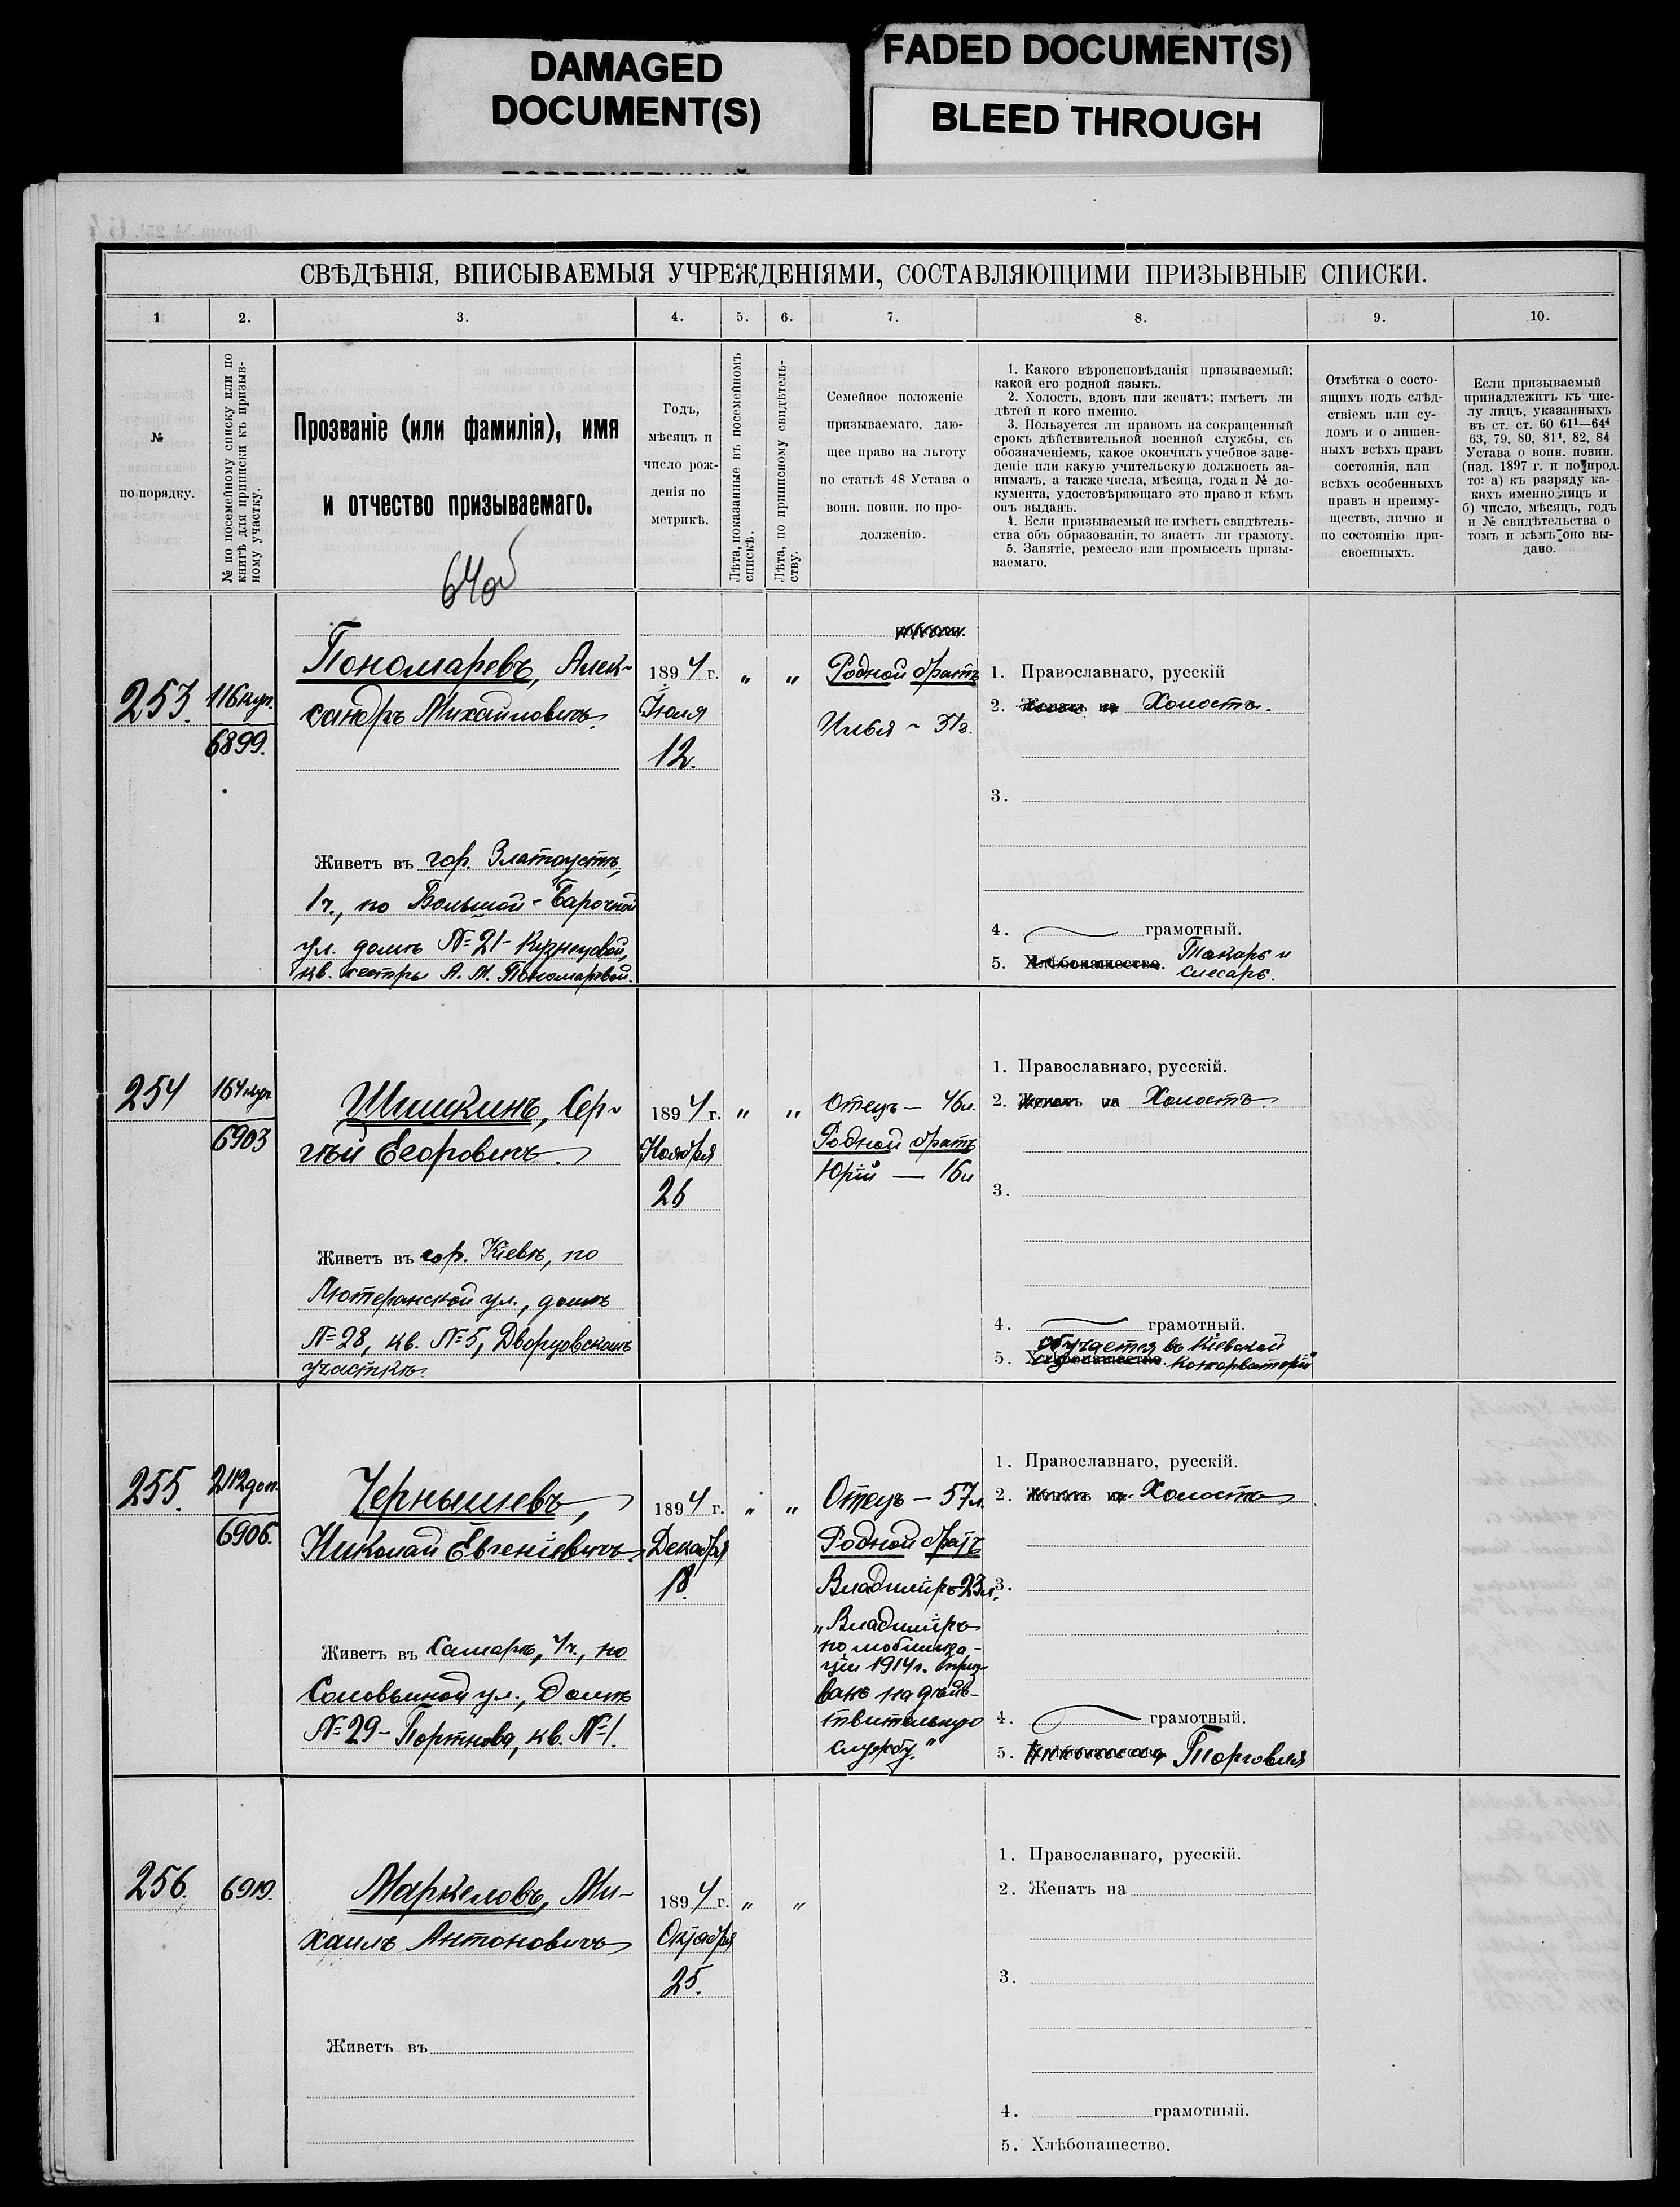 DAMAGED
DOCUMENT(S)
FADED DOCUMENT(S)
BLEED THROUGH
СВѢДѢНІЯ, ВПИСЫВАЕМЫЯ УЧРЕЖДЕНІЯМИ, СОСТАВЛЯЮЩИМИ ПРИЗЫВНЫЕ СПИСКИ.
1
2.
3.
4.
5.
6.
7.
8.
9.
10.
№
по порядку.
№ по посемейному списку или по
книгѣ для приписки къ призыв-
ному участку.
Прозваніе (или фамилія), имя
и отчество призываемаго.
64об
Годъ,
мѣсяцъ и
число рож-
денія по
метрикѣ.
Лѣта, показанные въ посемейномъ
спискѣ.
Лѣта, по приписному свидѣтель-
ству.
Семейное положеніе
призываемаго, даю-
щее право на льготу
по статьѣ 48 Устава о
воин. повин. по про-
долженію.
1. Какого вѣроисповѣданія призываемый;
какой его родной языкъ.
2. Холостъ, вдовъ или женатъ; имѣетъ ли
дѣтей и кого именно.
3. Пользуется ли правомъ на сокращенный
срокъ дѣйствительной военной службы, съ
обозначеніемъ, какое окончилъ учебное заве-
деніе или какую учительскую должность за-
нималъ, а также числа, мѣсяца, года и № до-
кумента, удостовѣряющаго это право и кѣмъ
онъ выданъ.
4. Если призываемый не имѣетъ свидѣтель-
ства объ образованіи, то знаетъ ли грамоту.
5. Занятіе, ремесло или промыселъ призы-
ваемаго.
Отмѣтка о состо-
ящихъ подъ слѣд-
ствіемъ или су-
домъ и о лишен-
ныхъ всѣхъ правъ
состоянія, или
всѣхъ особенныхъ
правъ и преиму-
ществъ, лично и
по состоянію при-
своенныхъ.
Если призываемый
принадлежитъ къ чис-
лу лицъ, указанныхъ
въ ст. ст. 60 61¹—64⁴
63, 79, 80, 81¹, 82, 84
Устава о воин. повин.
(изд. 1897 г. и по прод.
то: а) къ разряду ка-
кихъ именно лицъ и
б) число, мѣсяцъ, годъ
и № свидѣтельства о
томъ и кѣмъ оно вы-
дано.
253.
116 куп.
6899.
Пономаревъ, Алек-
сандръ Михайловичъ
Живетъ въ гор. Златоустѣ,
1ч., по Большой-Барочной
ул. домъ №21- Кузнецовой,
кв. сестры А. М. Пономаревой.
1894 г.
Іюля
12.
"
"
Родной братъ
Илья - 31г.
1. Православнаго, русскій
2. Женатъ на Холостъ.
3.
4. грамотный.
5. Хлѣбопашество. Токарь и
слесарь.
254
164 куп.
6903
Шишкинъ, Сер-
гѣй Егоровичъ.
Живетъ въ гор. Кіевѣ, по
Лютеранской ул., домъ
№28, кв. №5, Дворцовскомъ
участкѣ.
1894 г.
Ноября
26
"
"
Отецъ - 46л.
Родной братъ
Юрій — 16л
1. Православнаго, русскій.
2. Женатъ на Холостъ.
3.
4. грамотный.
Обучается въ Кіевской
5. Хлѣбопашество. Консерваторіи
255.
2112 доп.
6906.
Чернышевъ,
Николай Евгеніевичъ
Живетъ въ Самарѣ, 4ч., по
Соловьиной ул., домъ
№29 - Портнова, кв. №1.
1894 г.
Декабря
18.
"
"
Отецъ - 57л.
Родной братъ
Владиміръ-23л.
„Владиміръ
по мобилиза-
ціи 1914г. приз-
ванъ на дѣйс-
твительную
службу."
1. Православнаго, русскій.
2. Женатъ на Холостъ
3.
4. грамотный.
5. Хлѣбопашество Торговля
256.
6919.
Маркеловъ, Ми-
хаилъ Антоновичъ
Живетъ въ
1894 г.
Октября
25.
"
"
1. Православнаго, русскій.
2. Женатъ на
3.
4. грамотный.
5. Хлѣбопашество.